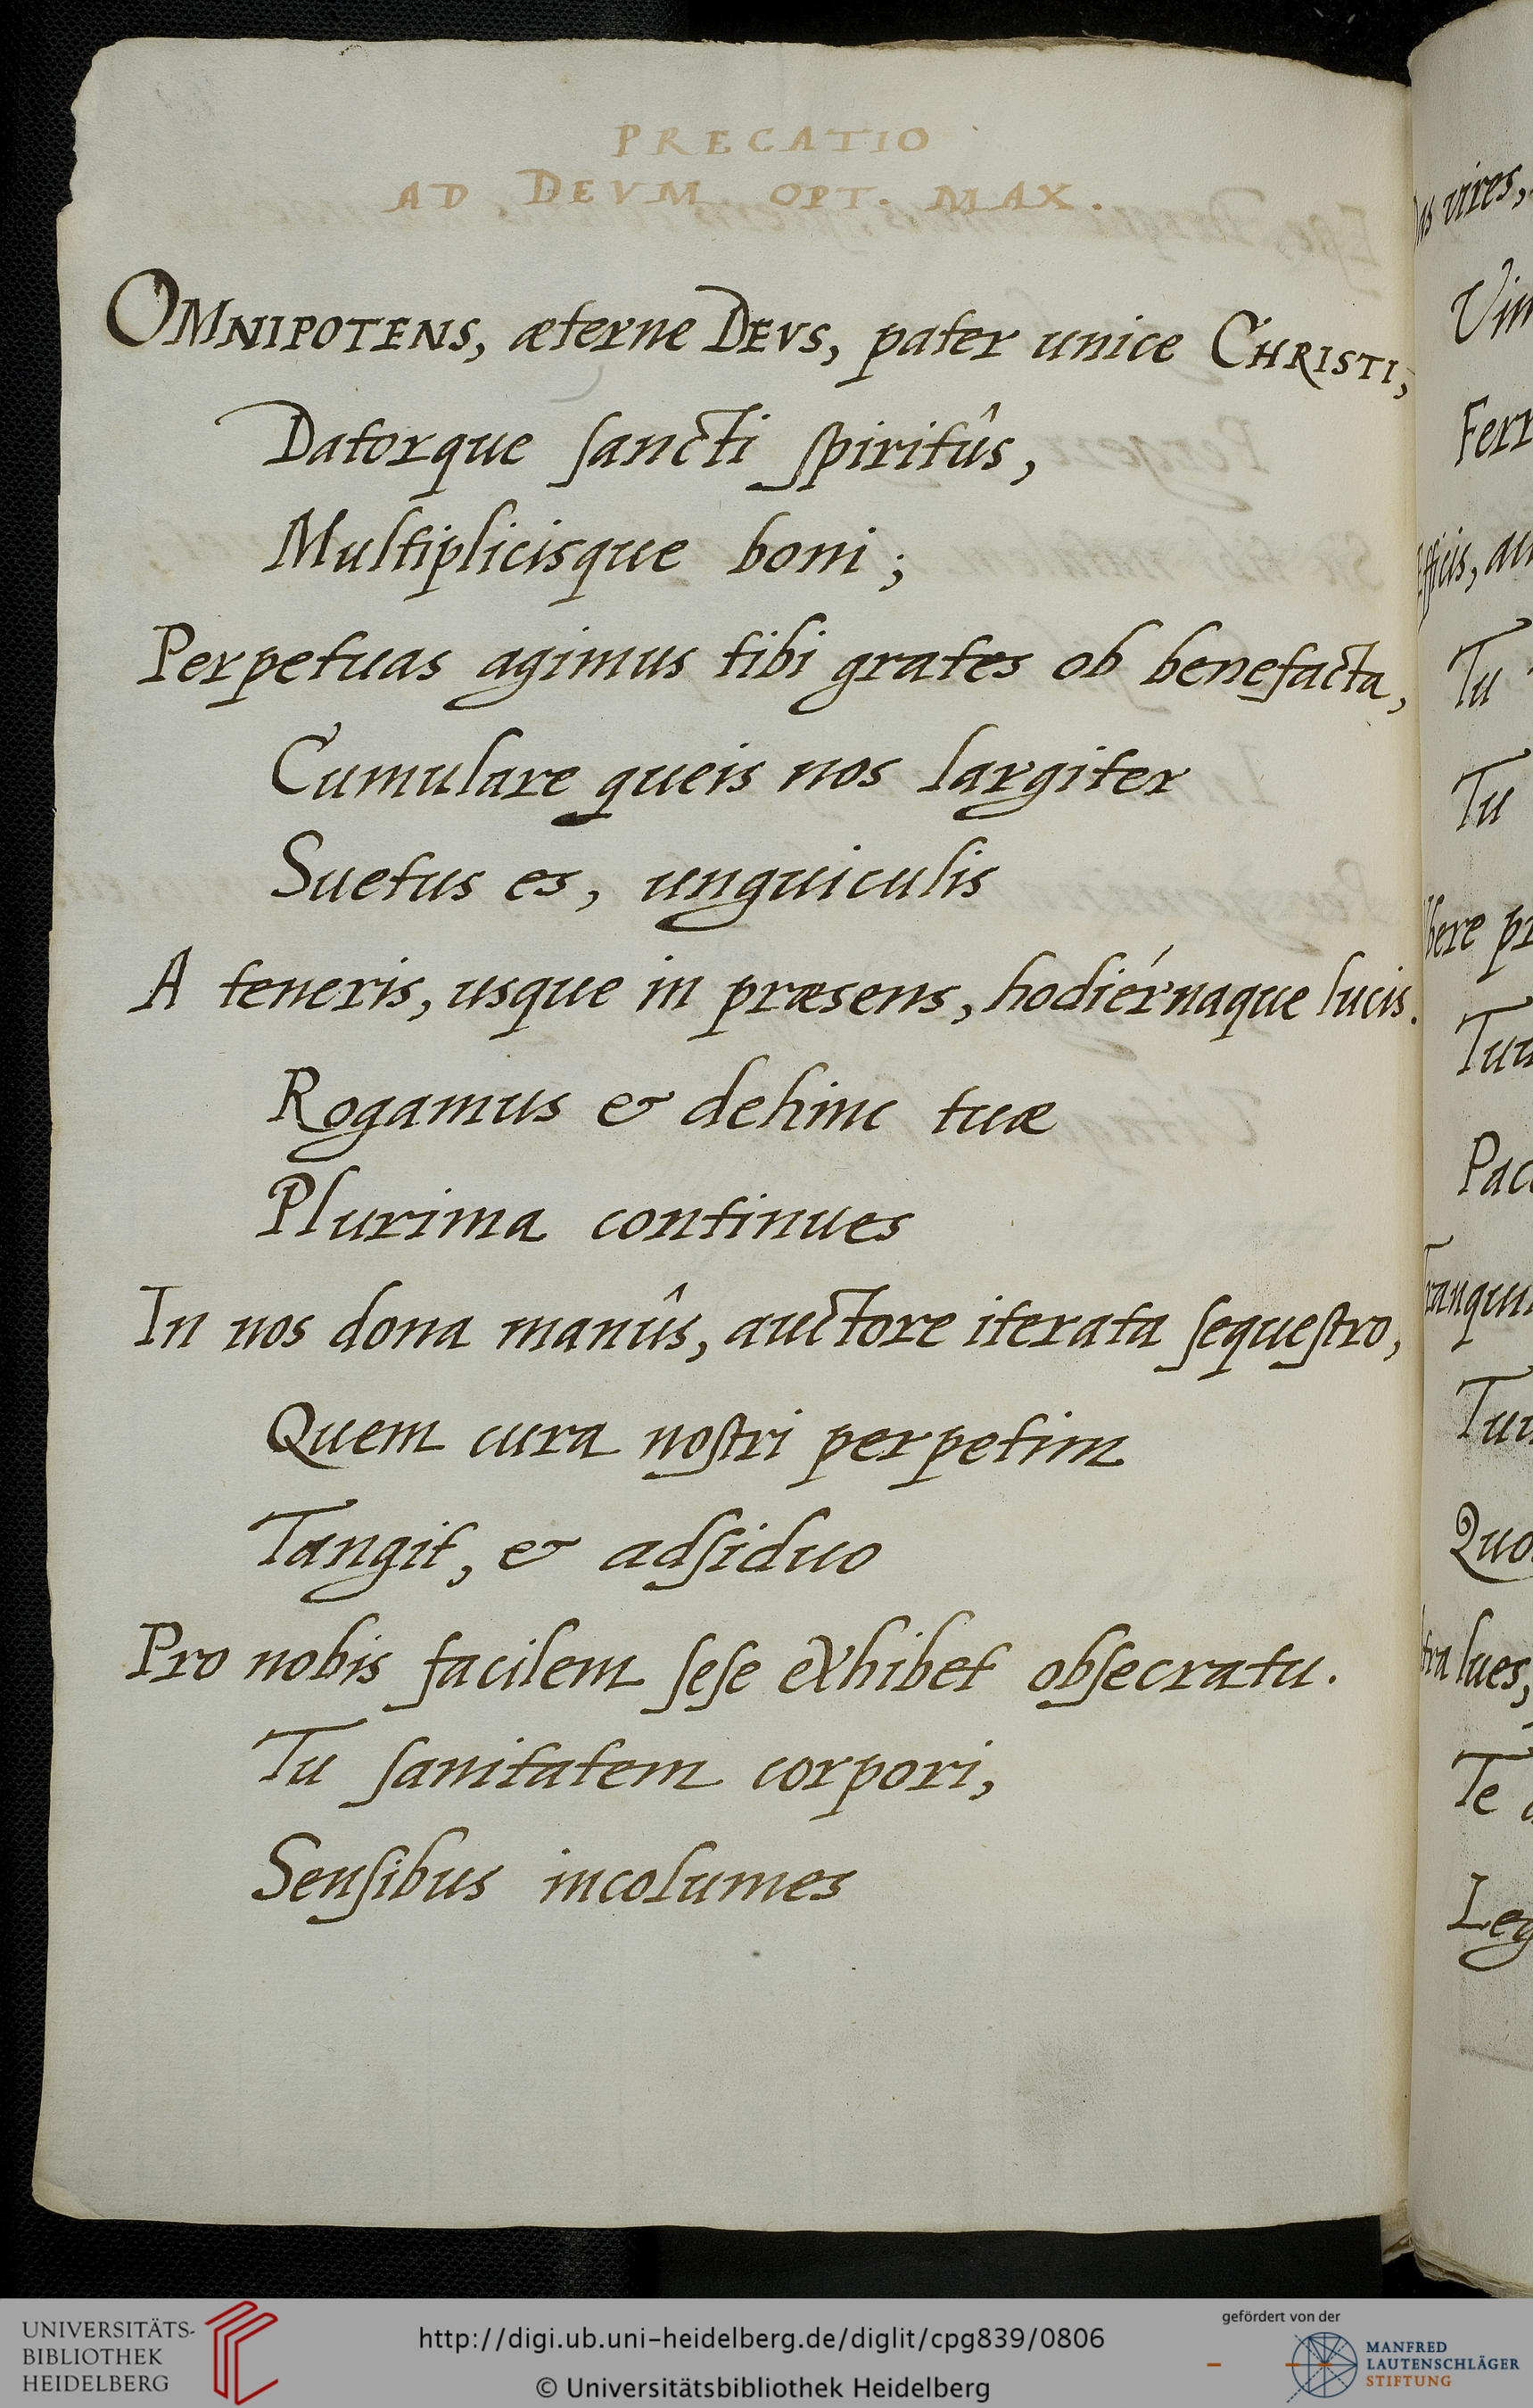 PRECATIO
AD DEVM OPT. MAX.
OMNIPOTENS, æterne DEVS, pater unice CHRISTI,
Datorque ſancti ſpiritûs,
Multiplicisque boni;
Perpetuas agimus tibi grates ob benefacta,
Cumulare queis nos largiter
Suetus es, unguiculis
A teneris, usque in præsens, hodiérnaque lucis.
Rogamus & dehinc tuæ
Plurima continues
In nos dona manûs, auctore iterata ſequeſtro,
Quem cura noſtri perpetim
Tangit, & adſiduo
Pro nobis facilem ſeſe exhibet obſecratu.
Tu ſanitatem corpori,
Senſibus incolumes
vires,
Tu
Tu
bere
lues,
Te
UNIVERSITÄTS-
BIBLIOTHEK
HEIDELBERG
http://digi.ub.uni-heidelberg.de/diglit/cpg839/0806
© Universitätsbibliothek Heidelberg
gefördert von der
MANFRED
LAUTENSCHLÄGER
STIFTUNG